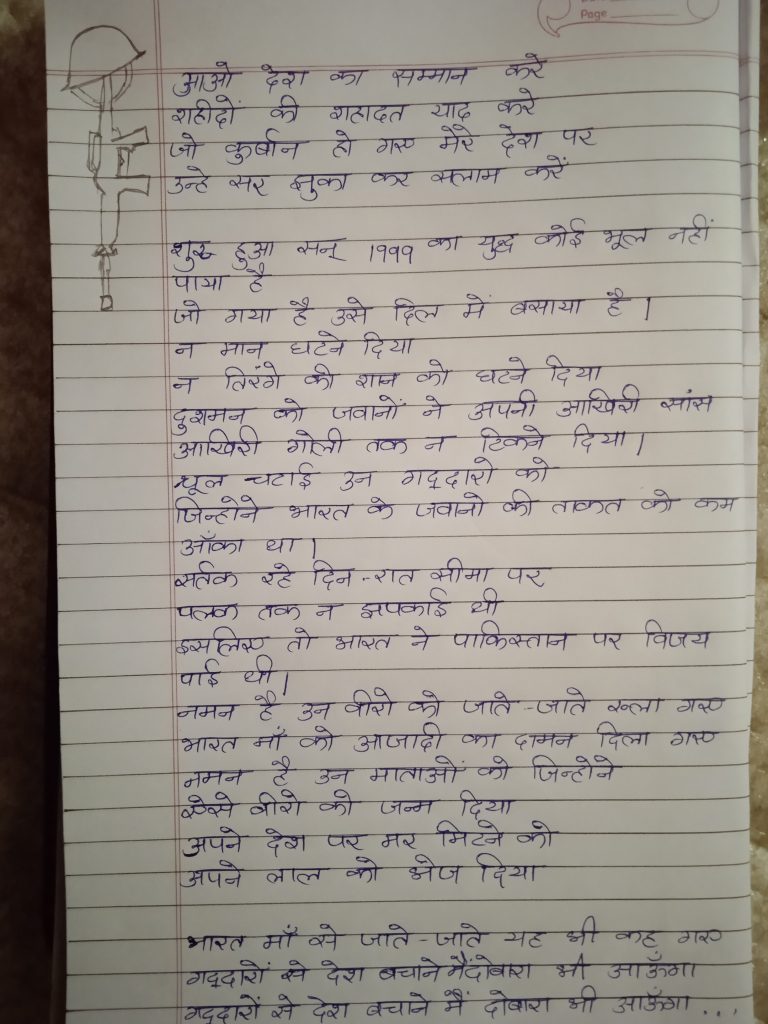 Page
आओ देश का सम्मान करे
शहीदों की शहादत याद करे
जो कुर्बान हो गए मेरे देश पर
उन्हे सर झुका कर सलाम करें
शुरू हुआ सन् 1999 का युद्ध कोई भूल नहीं
पाया है
जो गया है उसे दिल में बसाया है।
न मान घटने दिया
न तिरंगे की शान को घटने दिया
दुशमन को जवानों ने अपनी आखिरी सांस
आखिरी गोली तक न टिकने दिया।
धूल चटाई उन गद्दारो को
जिन्होने भारत के जवानो की ताकत को कम
आँका था।
सर्तक रहे दिन-रात सीमा पर
पलक तक न झपकाई थी
इसलिए तो भारत ने पाकिस्तान पर विजय
पाई थी।
नमन है उन वीरो को जाते-जाते रूला गए
भारत माँ को आजादी का दामन दिला गए
नमन है उन माताओं को जिन्होने
ऐसे वीरो को जन्म दिया
अपने देश पर मर मिटने को
अपने लाल को भेज दिया
भारत माँ से जाते-जाते यह भी कह गए
गद्दारों से देश बचाने मैंदोबारा भी आऊँगा
गद्दारों से देश बचाने मैं दोबारा भी आऊँगा ...